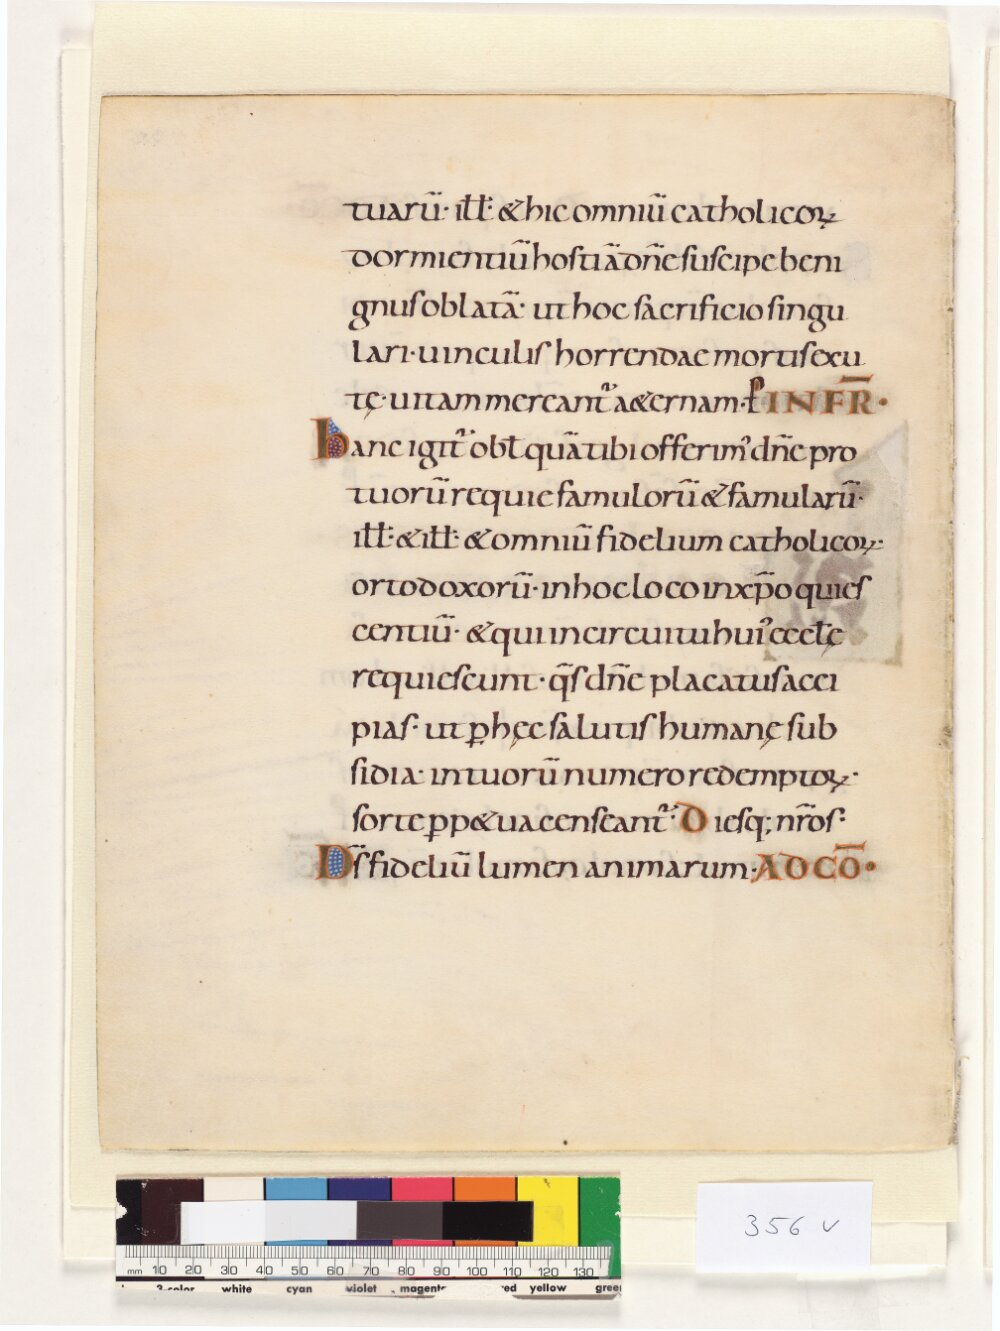 tuarū· ill̄· & hic omniū catholicoꝝ
dormientiū hostiā dn̄e suscipe beni
gnus oblatā· ut hoc sacrificio singu
lari· uinculis horrendae mortis exu
tę· uitam mereant᷑ a&ernam· ꝑ INFR̄·
hanc igit᷑ obl̄ quā tibi offerimꝰ dn̄e pro
tuorū requie famulorū & famularū·
ill̄· & ill̄· & omniū fidelium catholicoꝝ·
ortodoxorū· in hoc loco in xp̄o quies
centiū· & qui in circuitu huiꝰ eccl̄ę
requiescunt· q̄s dn̄e placatus acci
pias· ut ꝑ hęc salutis humanę sub
sidia· in tuorū numero redemptoꝝ·
sorte ꝑp&ua censeant᷑· Diesq; nr̄os·
D̄s fideliū lumen animarum· AD CŌ·
356 v
mm 10 20 30 40 50 60 70 80 90 100 110 120 130
3-color white cyan violet magenta red yellow green